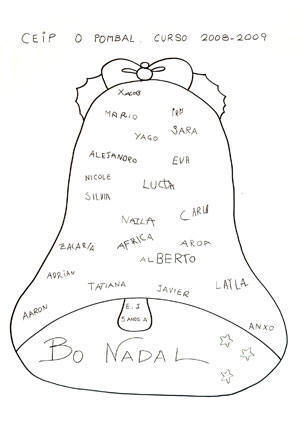 CEIP O POMBAL. CURSO 2008-2009
XACOB
MARIO
YAGO SARA
ALEJANDRO EVA
NICOLE LUCÍA
SILVIA
NAILA CARLA
ZACARÍA AFRICA AROA
ALBERTO
ADRIAN
TATIANA JAVIER LAYLA
AARON E.I ANXO
5 AÑOS A
BO NADAL